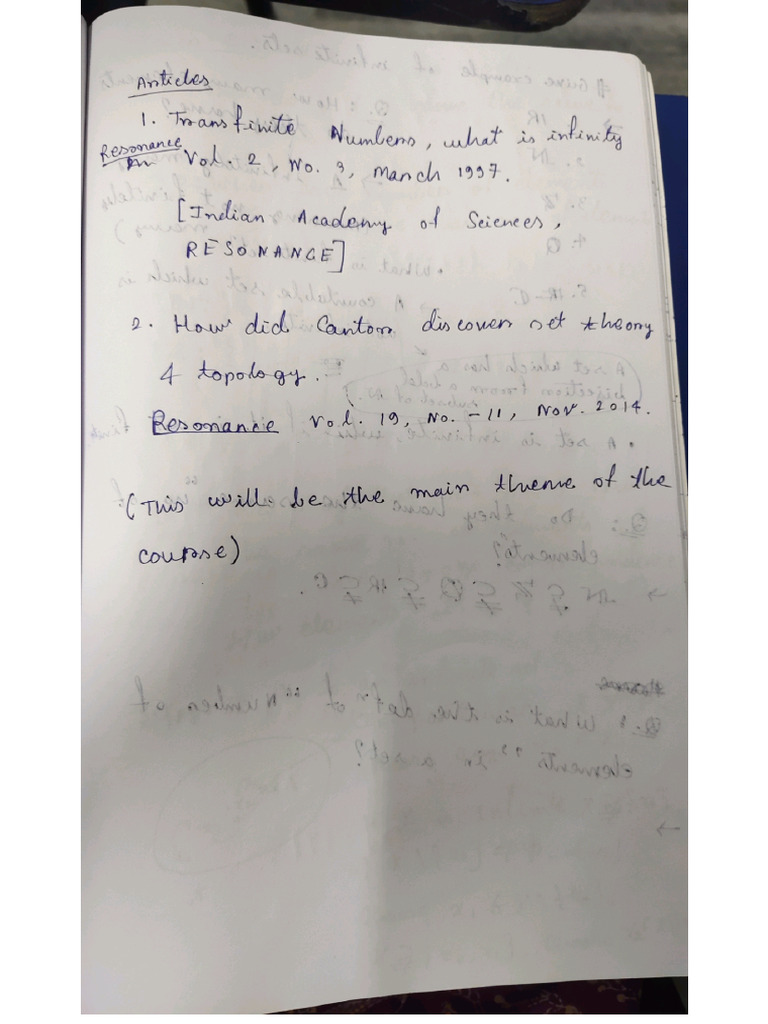 Articles
1. Transfinite Numbers, what is infinity
Resonance Vol. 2, No. 3, March 1997.
[Indian Academy of Sciences,
RESONANCE]
2. How did Cantor discover set theory
& topology.
Resonance Vol. 19, No. -11, Nov. 2014.
(This will be the main theme of the
course)